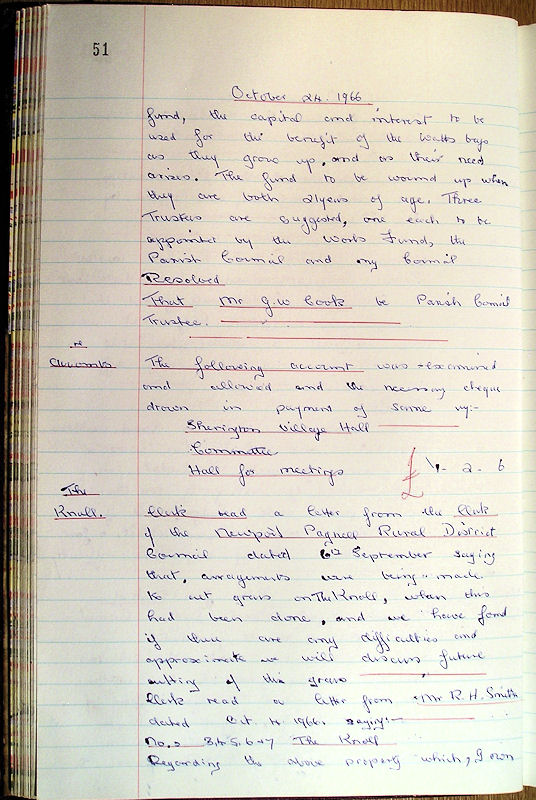 51
October 24. 1966
fund, the capital and interest to be
used for the benefit of the Watts boys
as they grow up, and as their need
arises. The fund to be wound up when
they are both 21 years of age. Three
Trustees are suggested, one each to be
appointed by the Works Fund, the
Parish Council and my Council
Resolved
That Mr G.W Cook be Parish Council
Trustee.
re
Accounts
The following account was examined
and allowed and the necessary cheque
drawn in payment of same viz:-
Sherington Village Hall
Committee
Hall for meetings £ 1. 2. 6
The
Knoll.
Clerk read a letter from the Clerk
of the Newport Pagnell Rural District
Council dated 6th September saying
that, arragements were being made
to cut grass on The Knoll, when this
had been done, and we have found
if there are any difficulties and
approximate we will discuss future
cutting of this grass
Clerk read a letter from Mr R. H. Smith
dated Oct. 1966. saying:-
No.s 3.4.5.6+7 The Knoll
Regarding the above property which, I own